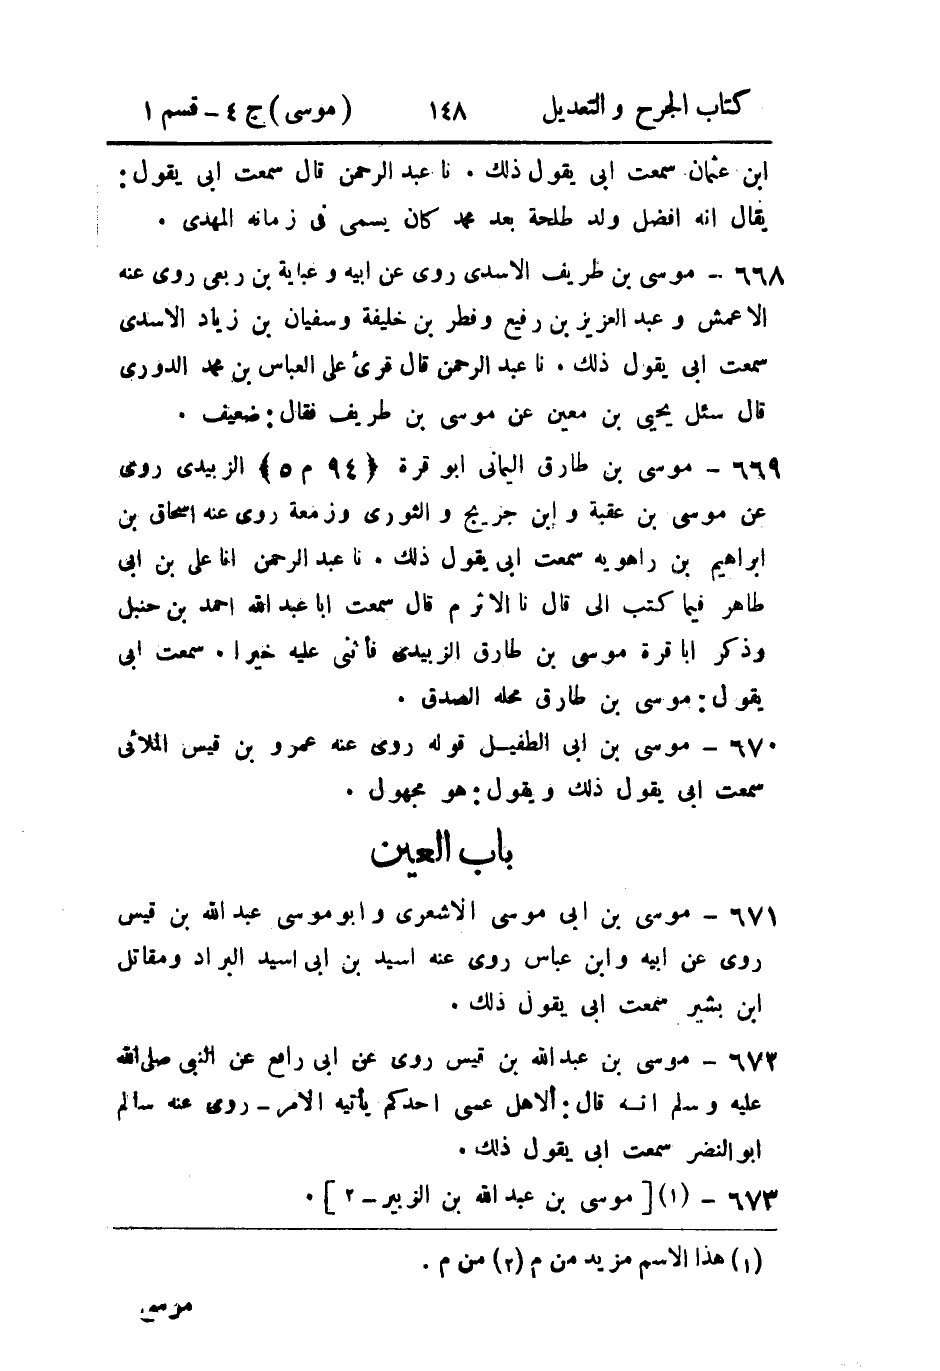 كتاب الجرح و التعديل ١٤٨ (موسى) ج ٤ – قسم ١
ابن عثمان سمعت ابى يقول ذلك . نا عبد الرحمن قال سمعت ابى يقول :
يقال انه افضل ولد طلحة بعد محمد كان يسمى فى زمانه المهدى .
٦٦٨ – موسى بن طريف الاسدى روى عن ابيه و عباية بن ربعى روى عنه
الاعمش و عبد العزيز بن رفيع و فطر بن خليفة و سفيان بن زياد الاسدى
سمعت ابى يقول ذلك . نا عبد الرحمن قال قرئ على العباس بن محمد الدورى
قال سئل يحيى بن معين عن موسى بن طريف فقال : ضعيف .
٦٦٩ – موسى بن طارق اليمانى ابو قرة ﴿ ٩٤ م ٥ ﴾ الزبيدى روى
عن موسى بن عقبة و ابن جريج و الثورى و زمعة روى عنه اسحاق بن
ابراهيم بن راهويه سمعت ابى يقول ذلك . نا عبد الرحمن انا على بن ابى
طاهر فيما كتب الى قال نا الاثرم قال سمعت ابا عبد الله احمد بن حنبل
وذكر ابا قرة موسى بن طارق الزبيدى فأثنى عليه خيرا . سمعت ابى
يقول : موسى بن طارق محله الصدق .
٦٧٠ – موسى بن ابى الطفيل قوله روى عنه عمرو بن قيس الملائى
سمعت ابى يقول ذلك و يقول : هو مجهول .
باب العين
٦٧١ – موسى بن ابى موسى الاشعرى و ابو موسى عبد الله بن قيس
روى عن ابيه و ابن عباس روى عنه اسيد بن ابى اسيد البراد ومقاتل
ابن بشير سمعت ابى يقول ذلك .
٦٧٢ – موسى بن عبد الله بن قيس روى عن ابى رافع عن النبى صلى الله
عليه و سلم انه قال : ألاهل عسى احدكم يأتيه الامر – روى عنه سالم
ابو النضر سمعت ابى يقول ذلك .
٦٧٣ – (١) [ موسى بن عبد الله بن الزبير – ٢ ] .
(١) هذا الاسم مزيد من م (٢) من م .
موسى